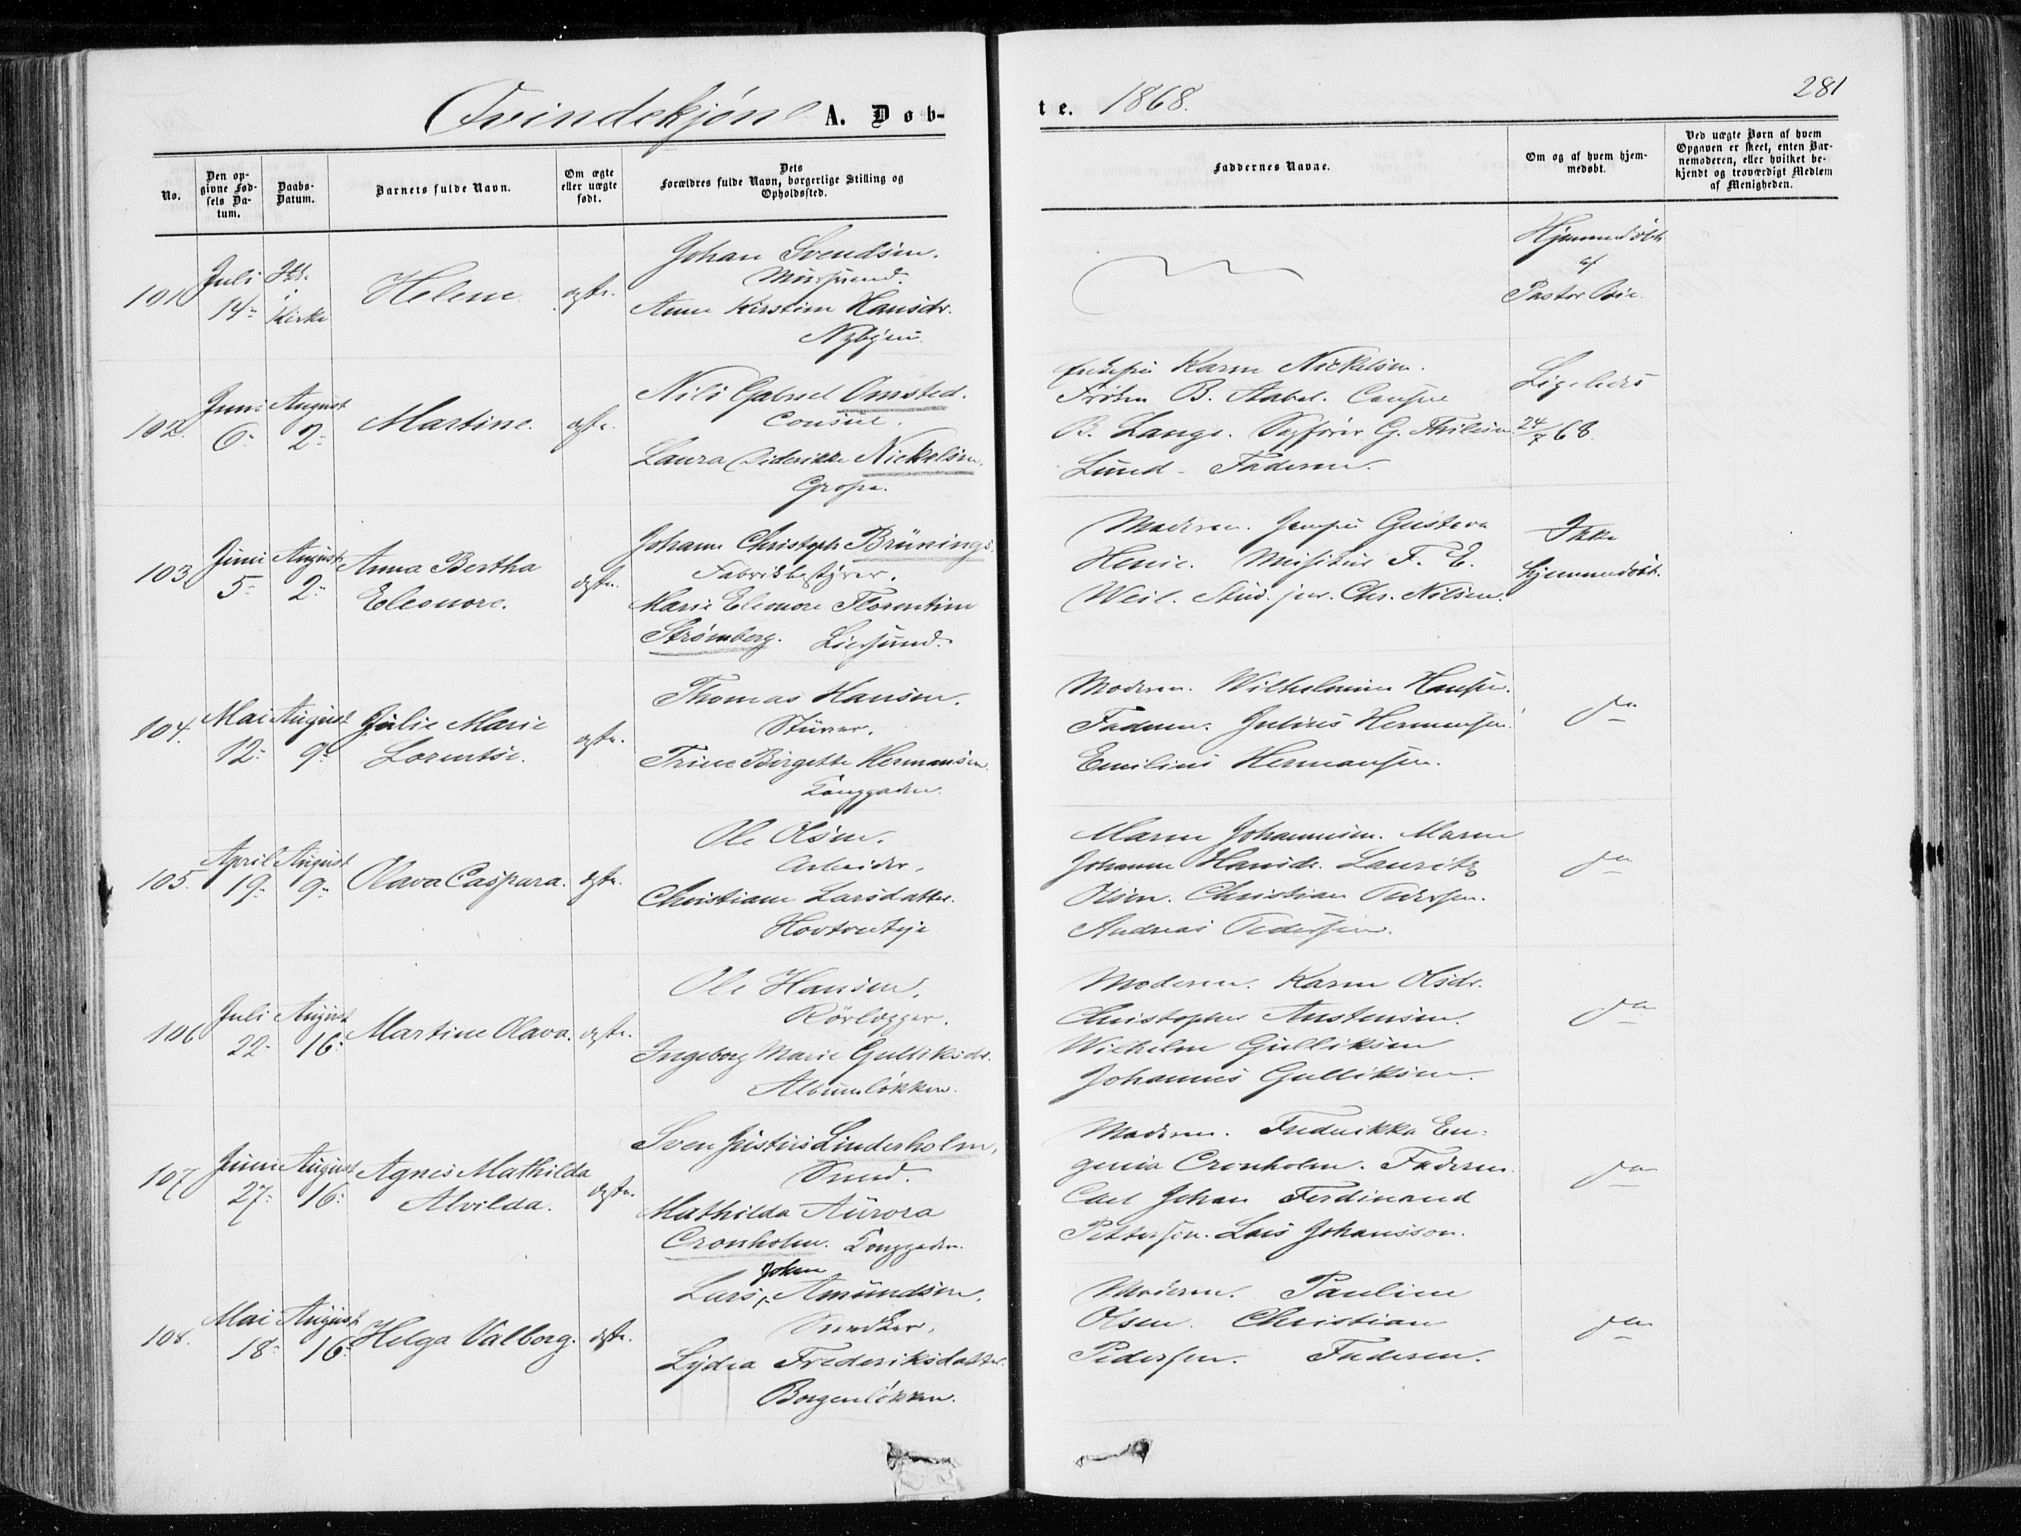 Qvindekjøn A. Døb-
te. 1868.
281
No.
Den op-
givne Fød-
sels Da-
tum.
Daabs-
Datum.
Barnets fulde Navn.
Om ægte
eller uægte
født.
Dets
Forældres fulde Navn, borgerlige Stilling og
Opholdssted.
Faddernes Navne.
Om og af hvem hjem-
medøbt.
Ved uægte Børn af hvem
Opgaven er skeet, enten Bar-
nemoderen, eller hvilket be-
kjendt og troværdigt Medlem
af Menigheden.
101
Juli
14
Ikke
i
Kirke
Helene
ægte.
Johan Svendsen.
Anne Kirstine Hansdr.
Nybyen.
Hjemmedøbt
af
Pastor
102.
Juni
6
August
2
Martine.
ægte.
Nils Gabriel Omsted.
Consul.
Laura Diderikke Nickelsen.
Karen Nickelsen.
Frøken B. Stabel. Consul
B. Lange. Sagfører G. Thilesen
Lund - Faderen.
Ligeledes
24/7 68.
103.
Juni
5
August
2
Anna Bertha
Eleonore.
ægte.
Johann Christoph Brünings.
Fabrikbestyrer.
Marie Eleonore Florentine
Strømberg. Liersund.
Moderen. Gustava
F. E.
Weil. Stud. jur. Chr. Nilsen.
Ikke
hjemmedøbt.
104.
Mai
12
August
9
Julie Marie
Lorentse.
ægte.
Thomas Hansen.
Stuver.
Trine Birgette Hermansen.
Tanggaden.
Moderen. Wilhelmine Hansen.
Faderen. Julius Hermansen.
Emilius Hermansen.
do
105.
April
19
August
9
Olava Caspara.
ægte.
Ole Olsen.
Arbeider.
Christiane Larsdatter.
Maren Johannesen. Maren
Johanne Hansdr. Lauritz
Olsen. Christian Pedersen.
Andreas Pedersen.
do
106
Juli
22
August
16
Martine Olava.
ægte.
Ole Hansen.
Rørlægger.
Ingeborg Marie Gulliksdr.
Albumløkken.
Moderen. Karen Olsdr.
Christopher Austensen.
Wilhelm Gulliksen
Johannes Gulliksen.
do
107
Juni
27
August
16
Agnes Mathilda
Alvilda.
ægte.
Sven Justus Linderholm,
Smed.
Mathilda Aurora
Cronholm. Tanggaden.
Moderen. Fredrikka Eu-
genia Cronholm. Faderen
Carl Johan Ferdinand
Pettersen. Lars Johansson.
do
108.
Mai
18
August
16
Helga Valborg.
ægte.
Johan
Lars Amundsen.
Snedker.
Lydia Frederiksdatter
Borgenløkken.
Moderen. Pauline
Olsen. Christian
Pedersen. Faderen.
do